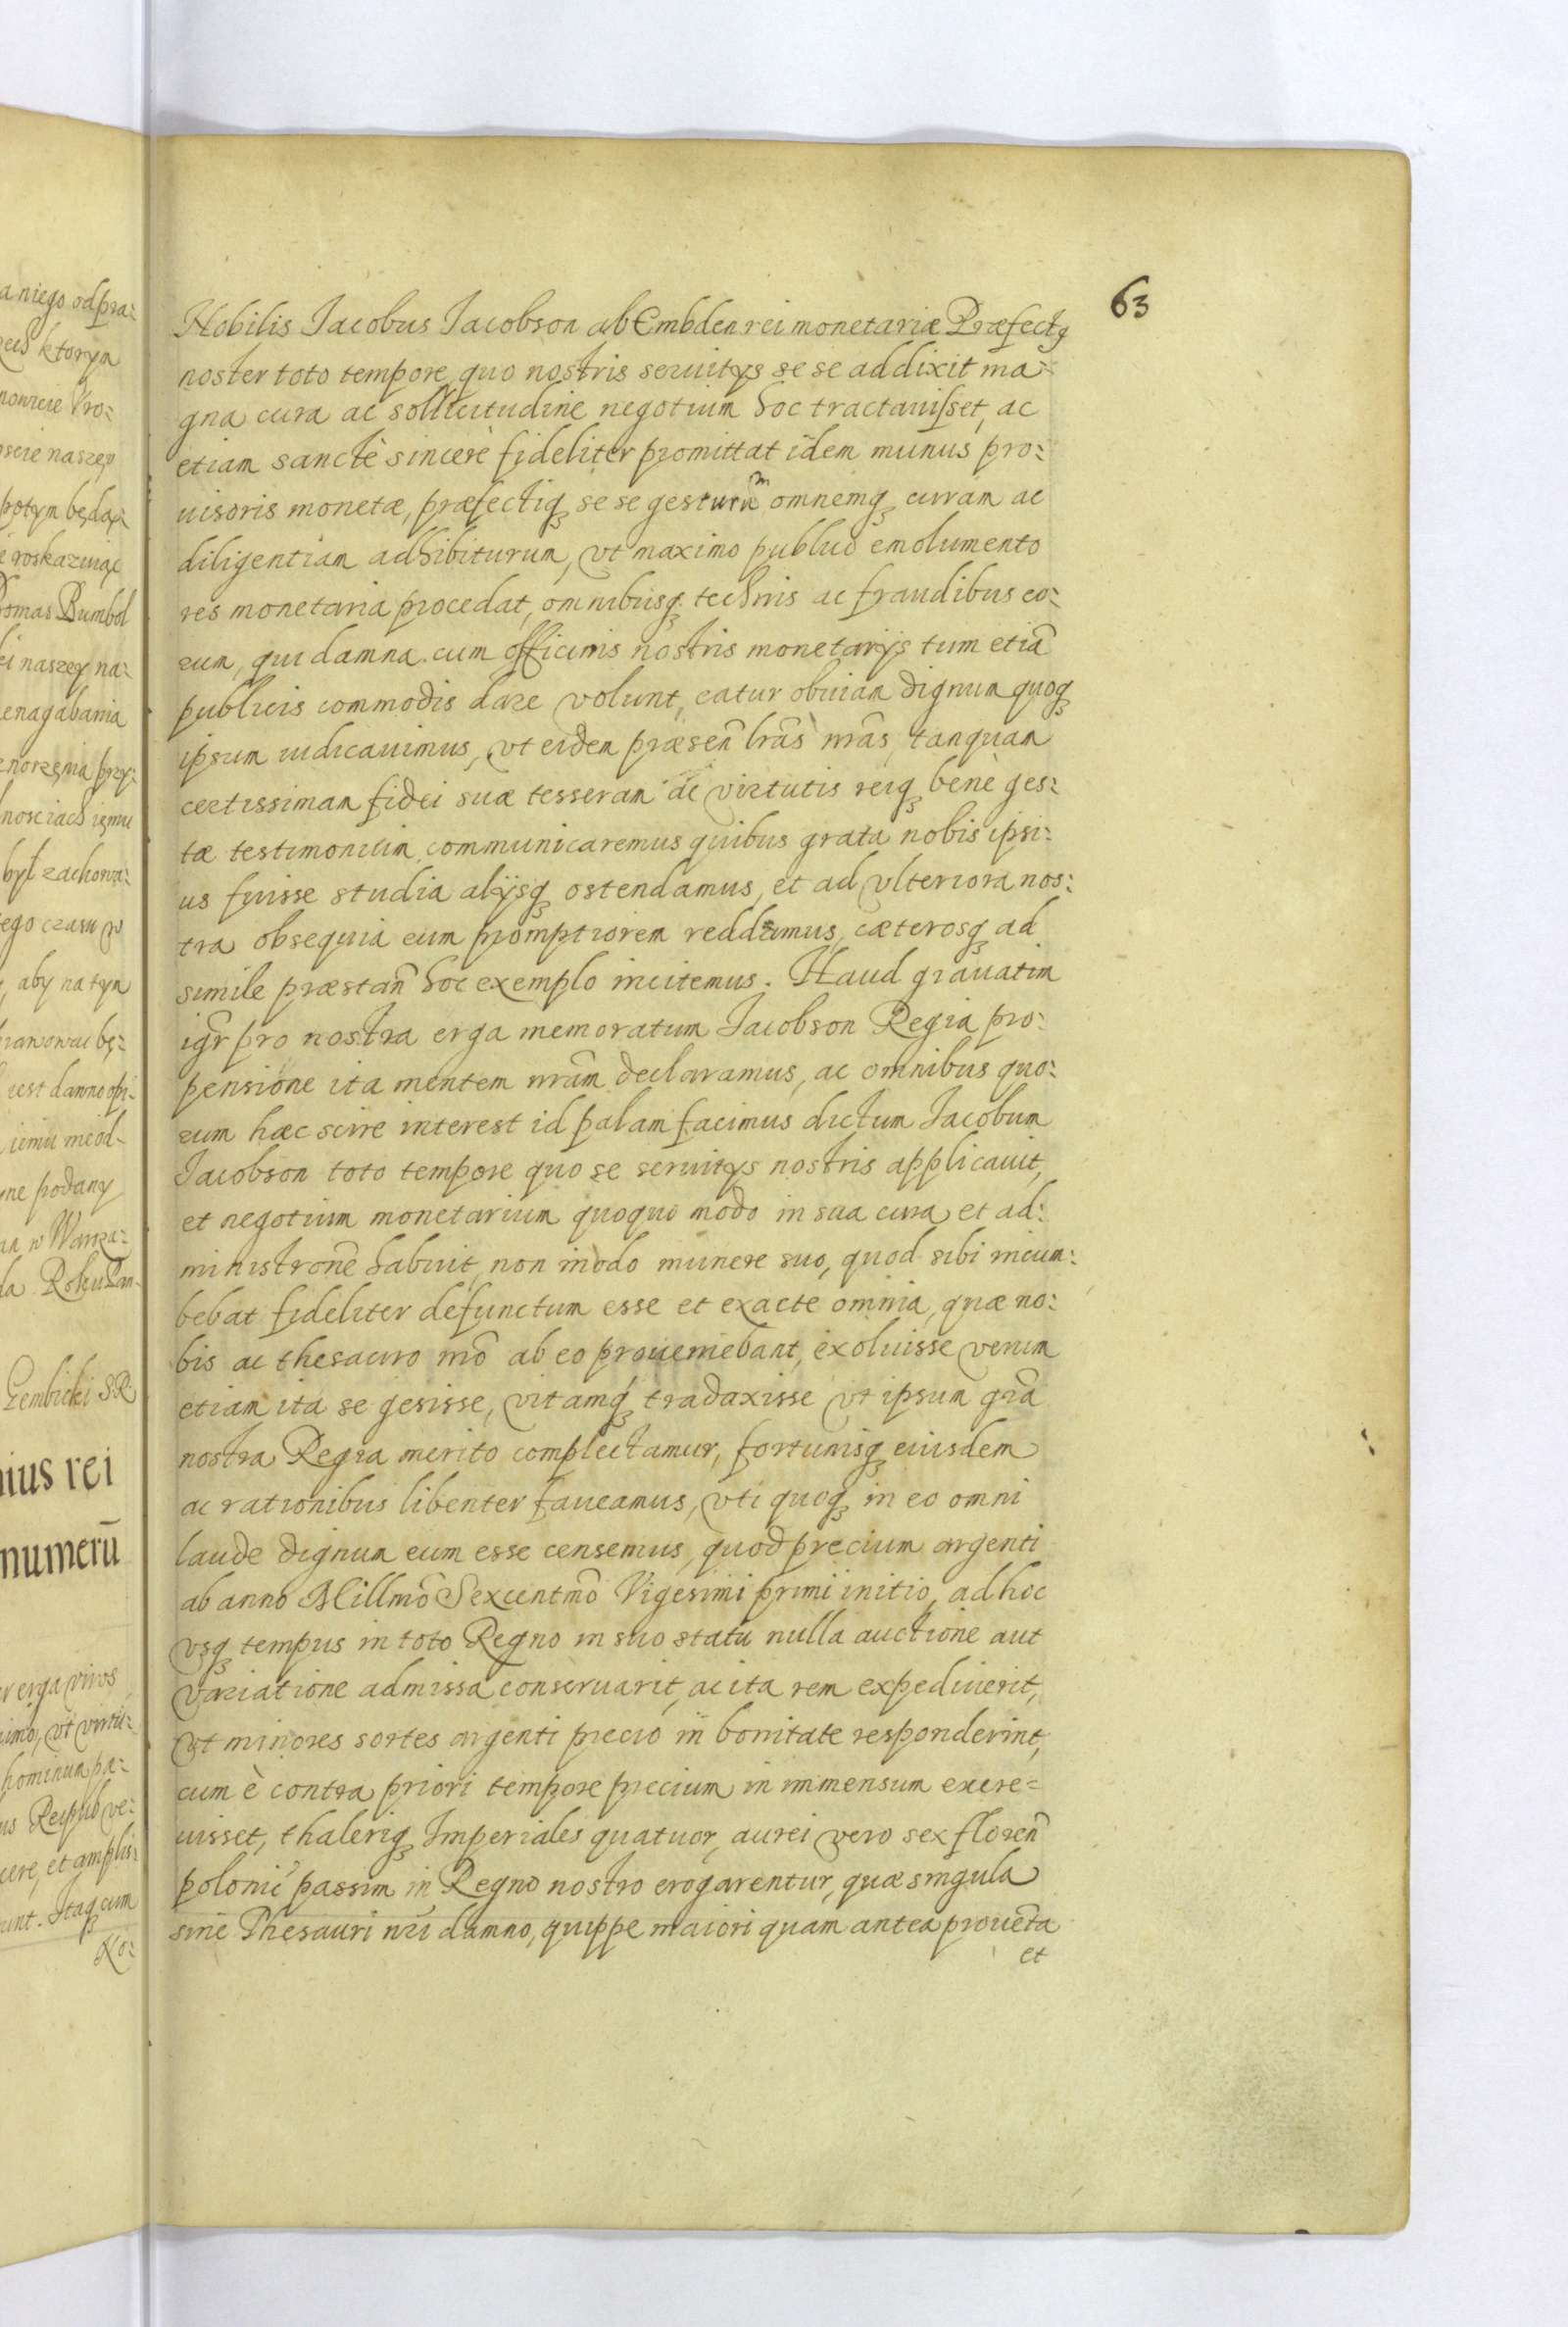 63
Nobilis Jacobus Jacobson ab Embden rei monetariæ Præfectꝰ
noster toto tempore quo nostris seruitys se se addixit ma:
gna cura ac sollicitudine negotium hoc tractauisset, ac
etiam sanctè sincerè fideliter promittat idem munus pro:
uisoris monetæ, præfectiqꝫ se se gesturum omnemqꝫ curam ac
diligentiam adhibiturum, vt maximo publico emolumento
res monetaria procedat, omnibusqꝫ technis ac fraudibus eo:
rum, qui damna cum officinis nostris monetarijs tum etiã
publicis commodis dare volunt, eatur obuiam dignum quoqꝫ
ipsum iudicauimus, vt eidem præsen̄ lrãs nrãs, tanquam
certissimam fidei suæ tesseram ac virtutis reiqꝫ benè ges:
tæ testimonium communicaremus quibus grata nobis ipsi:
us fuisse studia alijsqꝫ ostendamus, et ad vlteriora nos:
tra obsequia eum promptiorem reddamus, cæterosqꝫ ad
simile præstan̄ hoc exemplo incitemus. Haud grauatim
igr̃ pro nostra erga memoratum Jacobson Regia pro:
pensione ita mentem nrãm declaramus, ac omnibus quo:
rum hæc scire interest id palam facimus dictum Jacobum
Jacobson toto tempore quo se seruitys nostris applicauit,
et negotium monetarium quoquo modo in sua cura et ad:
ministrõne habuit, non modo munere suo, quod sibi incum:
bebat fideliter defunctum esse et exacte omnia, quæ no:
bis ac thesauro nrõ ab eo proueniebant, exoluisse verum
etiam ita se gesisse, vitamqꝫ tradaxisse vt ipsum grã
nostra Regia merito complectamur, fortunisqꝫ eiusdem
ac rationibus libenter faueamus, vti quoqꝫ in eo omni
laude dignum eum esse censemus, quod precium argenti
ab anno Millmõ Sexcentmõ Vigesimi primi initio, ad hoc
vsqꝫ tempus in toto Regno in suo statu nulla auctione aut
variatione admissa conseruarit, ac ita rem expediuerit,
vt minores sortes argenti precio in bonitate responderint,
cum è contra priori tempore precium in immensum excre=
uisset, thaleriqꝫ Imperiales quatuor, aurei vero sex floren̄
polonic̃ passim in Regno nostro erogarentur, quæ singula
sine Thesauri nrĩ damno, quippe maiori quam antea prouẽta
et
a niego odpra:
ktorym
nowicie Pro:
scie naszey
potym będąc:
roskazuiąc
Tomas Bumbol
naszey na:
enagabania
przy:
nosciach
był zachowa:
ego czasu w
, aby na tym
bę:
iest dawno opi:
me od-
ne podany
w Warsza:
da Roku Pan-
Gembicki SR
nius rei
numerū
erga viros
imo, vt virtu:
hominum pa:
us Reipub ve:
cere, et amplis:
unt. Itaqꝫ cum
No: